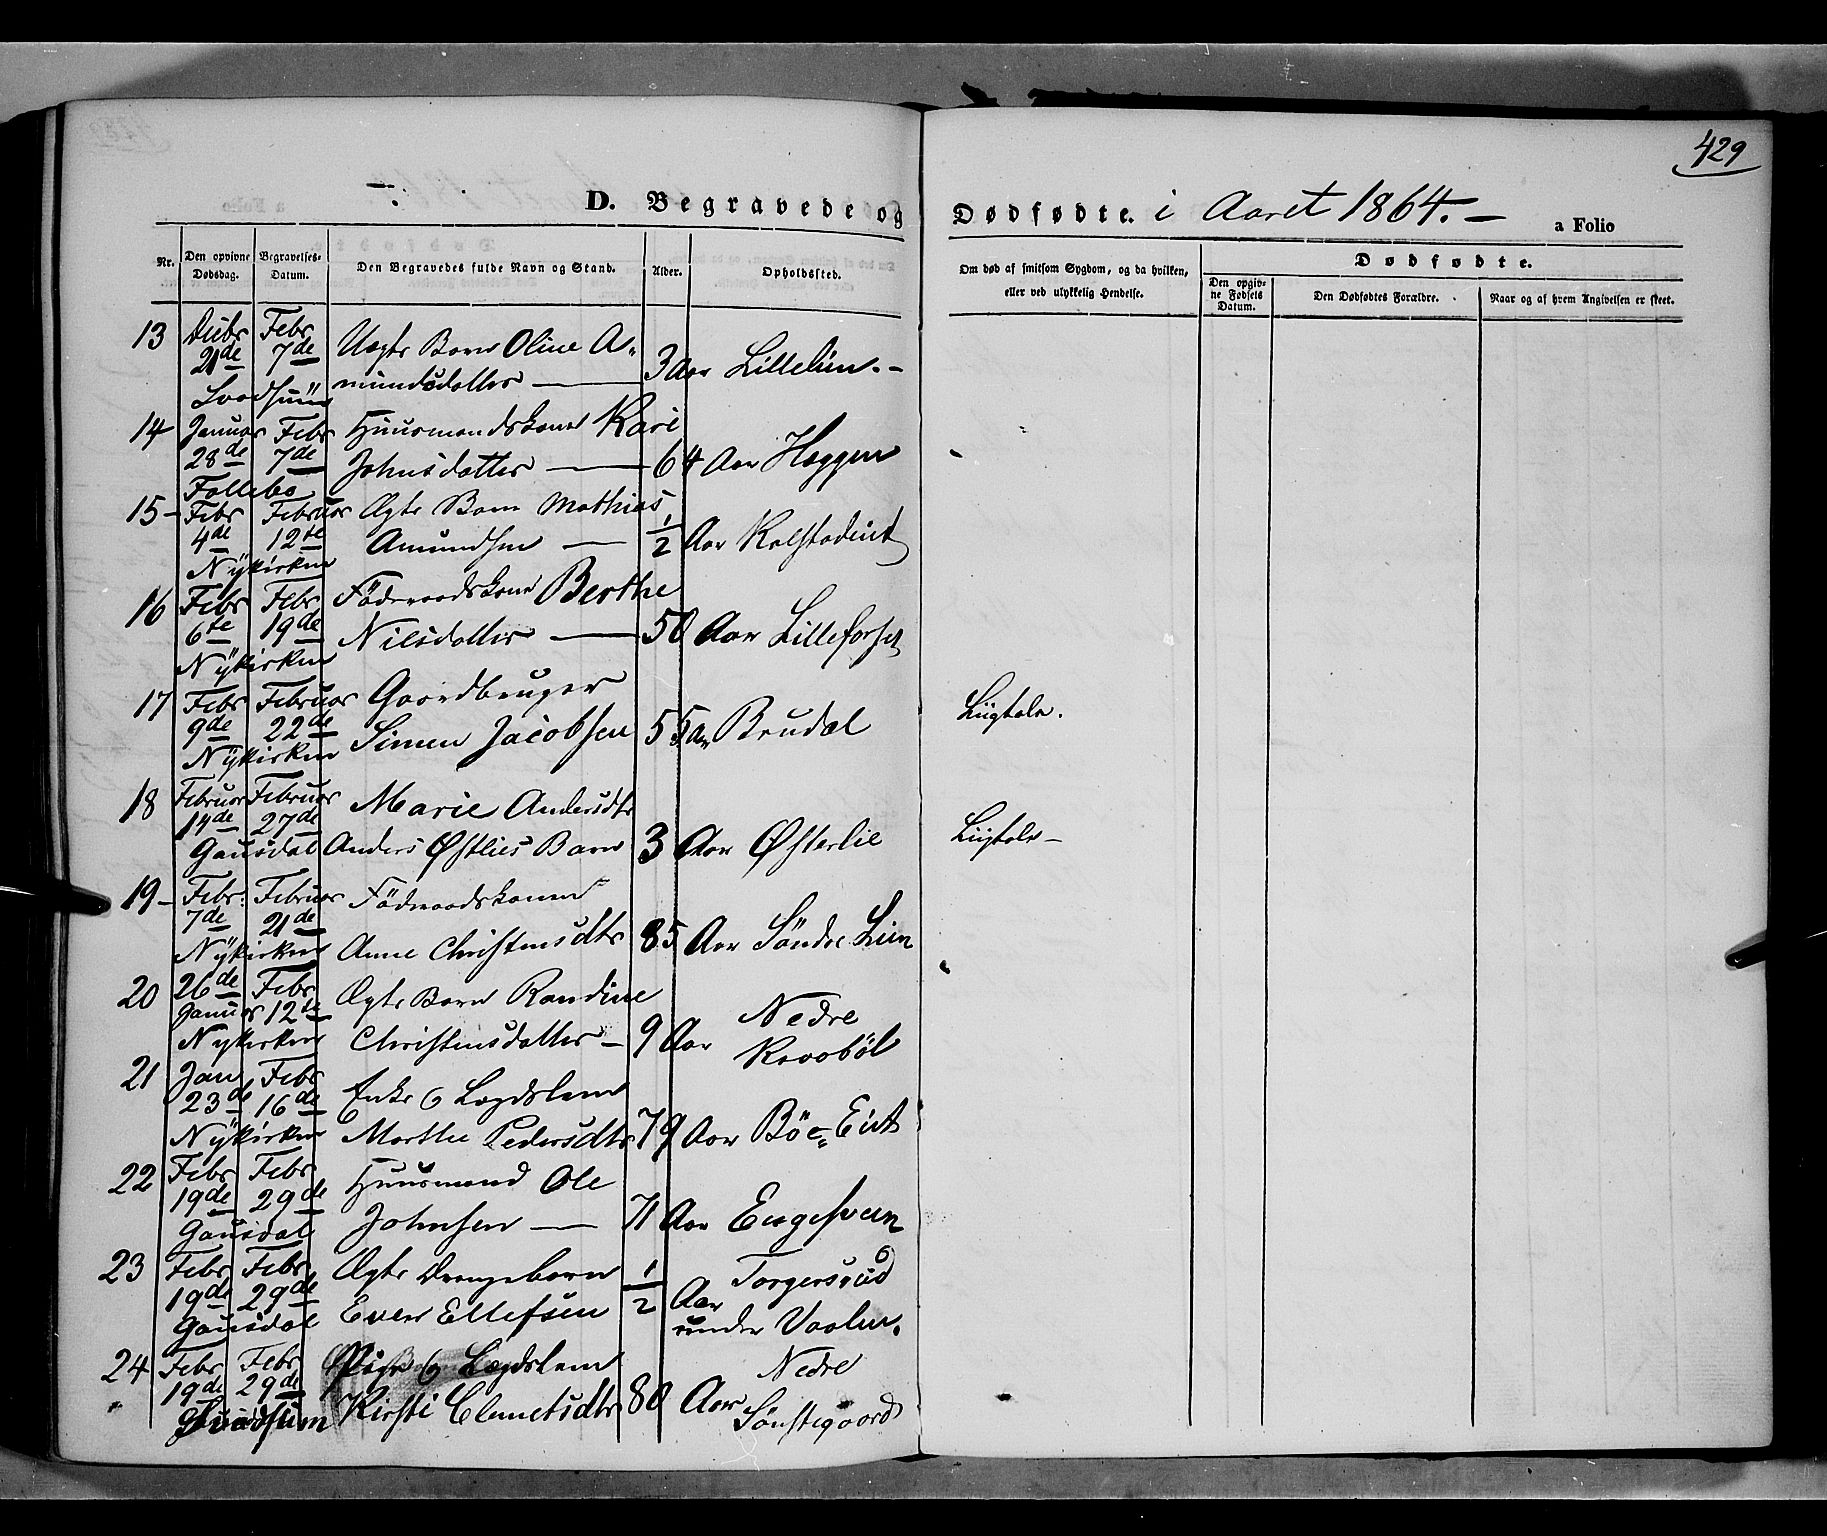 429
D. Begravede og Dødfødte. i Aaret 1864. -
a Folio
Nr.
Den opgivne Dødsdag.
Begravelses-Datum.
Den Begravedes fulde Navn og Stand.
Alder.
Opholdssted.
Om død af smitsom Sygdom, og da hvilken,
eller ved ulykkelig Hendelse.
Dødfødte.
Den opgivne Fødsels Datum.
Den Dødfødtes Forældre.
Naar og af hvem Angivelsen er skeet.
13 Febr
21de 7de Uægte Barn Oline A-
mundsdatter — 3 Aar Lillelien. -
14 Januar Febr Huusmandskone Kari
28de 7de Johnsdatter — 64 Aar Haggen
Follebo
15 - Febr Februar Ægte Barn Mathias
4de 12te Amundsen — 1/2 Aar Kalstadeiet
Nykirken
16 Febr Febr Föderaadskone Berthe
6te 19de Nilsdatter — 50 Aar Lilleforset
Nykirken
17 Febr Februar Gaardbruger
9de 22de Simen Jacobsen 55 Aar Brudal Liigtale.
Nykirken
18 Februar Februar Marie Andersdtr
14de 27de
Gausdal Anders Østlies Barn 3 Aar Østerlie Liigtale -
19 - Febr. Februar Föderaadskonen
7de 21de
Nykirken Anne Christensdtr 85 Aar Söndre Lien
20 26de Febr Ægte Barn Randine
Januar 12te Nedre
Nykirken Christensdatter - 9 Aar Kraabøl
21 Jan Febr Enke & Lægdslem
23de 16de
Nykirken Marthe Pedersdtr 79 Aar Böe-Eiet
22 Febr Febr Huusmand Ole
19de 29de
Gausdal Johnsen — 71 Aar Engesveen
23 Febr Febr Ægte Drengebarn 1/2 Torgersrud
19de 29de Aar
Gausdal Even Ellefsen under Vaalen.
24 Febr Febr Pige & Lægdslem Nedre
19de 29de
Kirsti Clemetsdtr 80 Aar Sönstegaard